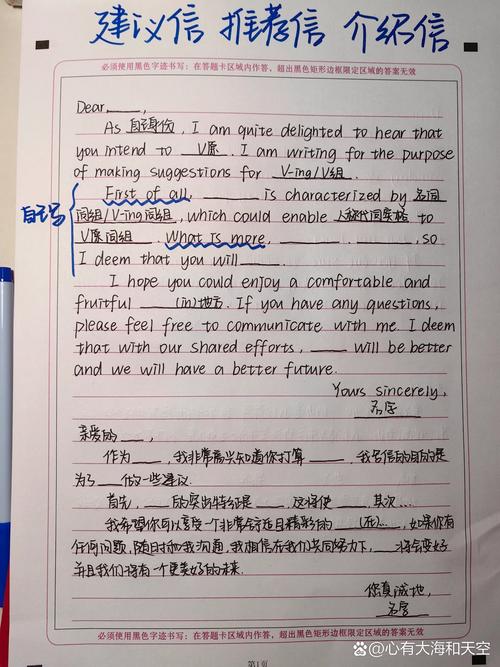 建议信 推荐信 介绍信
必须使用黑色字迹书写；在答题卡区域内作答，超出黑色矩形边框限定区域的答案无效
Dear, ____ ,
As 自己身份, I am quite delighted to hear that
you intend to V原. I am writing for the purpose
of making suggestions for V-ing/V组.
First of all, ____ is characterized by 名词
词组/V-ing词组, which could enable 人称代词宾格 to
自己写
V原词组. What is more, ____, ____, so
I deem that you will ____.
I hope you could enjoy a comfortable and
fruitful ____ (in)地方. If you have any questions,
please feel free to communicate with me. I deem
that with our shared efforts, ____ will be better
and we will have a better future.
Yours sincerely,
名字
亲爱的 ____,
作为 ____, 我非常高兴知道你打算 ____, 我写信的目的是
为了 ____ 做一些建议.
首先, ____ 的突出特征是 ____, 这将使 ____, 其次...
我希望你可以享受一个非常舒适且精彩的 ____ (在)..., 如果你有
任何问题, 随时和我沟通, 我相信在我们共同努力下, ____ 将会变好
并且我们将有一个更美好的未来.
您真诚地,
名字
必须使用黑色字迹书写；在答题卡区域内作答，超出黑色矩形边框限定区域的答案无效
第1页
@心有大海和天空